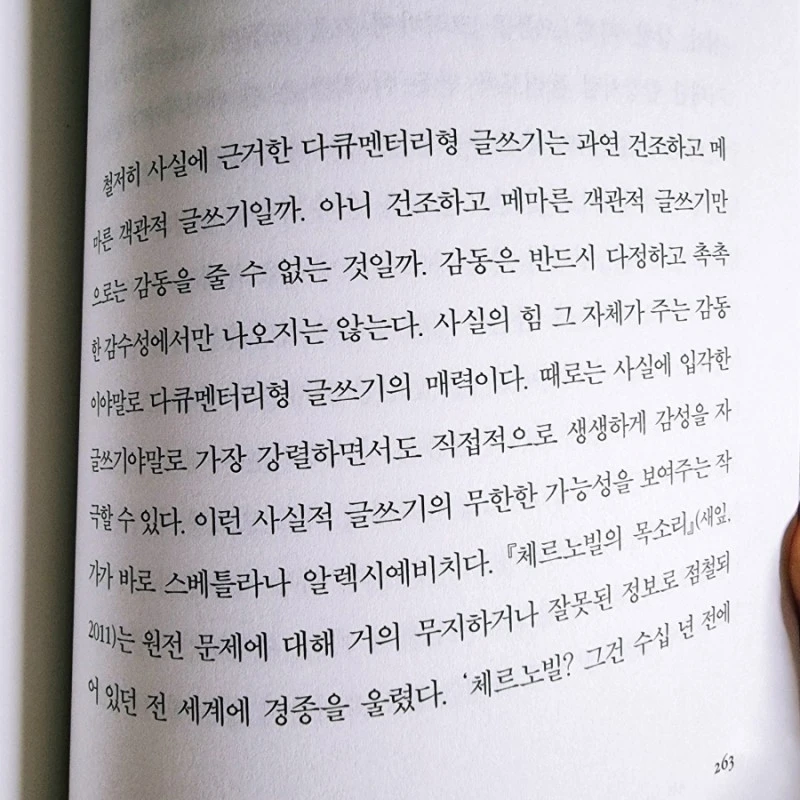 철저히 사실에 근거한 다큐멘터리형 글쓰기는 과연 건조하고 메
마른 객관적 글쓰기일까. 아니 건조하고 메마른 객관적 글쓰기만
으로는 감동을 줄 수 없는 것일까. 감동은 반드시 다정하고 촉촉
한 감수성에서만 나오지는 않는다. 사실의 힘 그 자체가 주는 감동
이야말로 다큐멘터리형 글쓰기의 매력이다. 때로는 사실에 입각한
글쓰기야말로 가장 강렬하면서도 직접적으로 생생하게 감성을 자
극할 수 있다. 이런 사실적 글쓰기의 무한한 가능성을 보여주는 작
가가 바로 스베틀라나 알렉시예비치다. 『체르노빌의 목소리』(새잎,
2011)는 원전 문제에 대해 거의 무지하거나 잘못된 정보로 점철되
어 있던 전 세계에 경종을 울렸다. ‘체르노빌? 그건 수십 년 전에
263